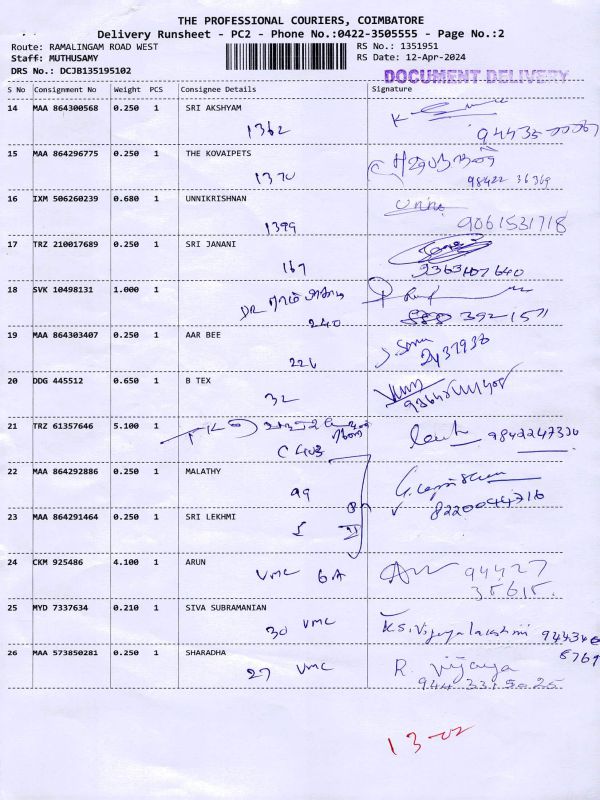 THE PROFESSIONAL COURIERS, COIMBATORE
Delivery Runsheet - PC2 - Phone No.:0422-3505555 - Page No.:2
Route: RAMALINGAM ROAD WEST RS No.: 1351951
Staff: MUTHUSAMY RS Date: 12-Apr-2024
DRS No.: DCJB135195102 DOCUMENT DELIVERY
S No Consignment No Weight PCS Consignee Details Signature
14 MAA 864300568 0.250 1 SRI AKSHYAM
1362
15 MAA 864296775 0.250 1 THE KOVAIPETS
1370 98422 36369
16 IXM 506260239 0.680 1 UNNIKRISHNAN
1399 9061531718
17 TRZ 210017689 0.250 1 SRI JANANI
167
18 SVK 10498131 1.000 1
DR
240
19 MAA 864303407 0.250 1 AAR BEE
226
20 DDG 445512 0.650 1 B TEX
32
21 TRZ 61357646 5.100 1
C 403
22 MAA 864292886 0.250 1 MALATHY
99 8220044716
23 MAA 864291464 0.250 1 SRI LEKHMI
24 CKM 925486 4.100 1 ARUN
VMC 6A 94427
35615.
25 MYD 7337634 0.210 1 SIVA SUBRAMANIAN
30 VMC K.S. Vijayalakshmi 944346
8769
26 MAA 573850281 0.250 1 SHARADHA
27 VMC R. Vijaya
13-02